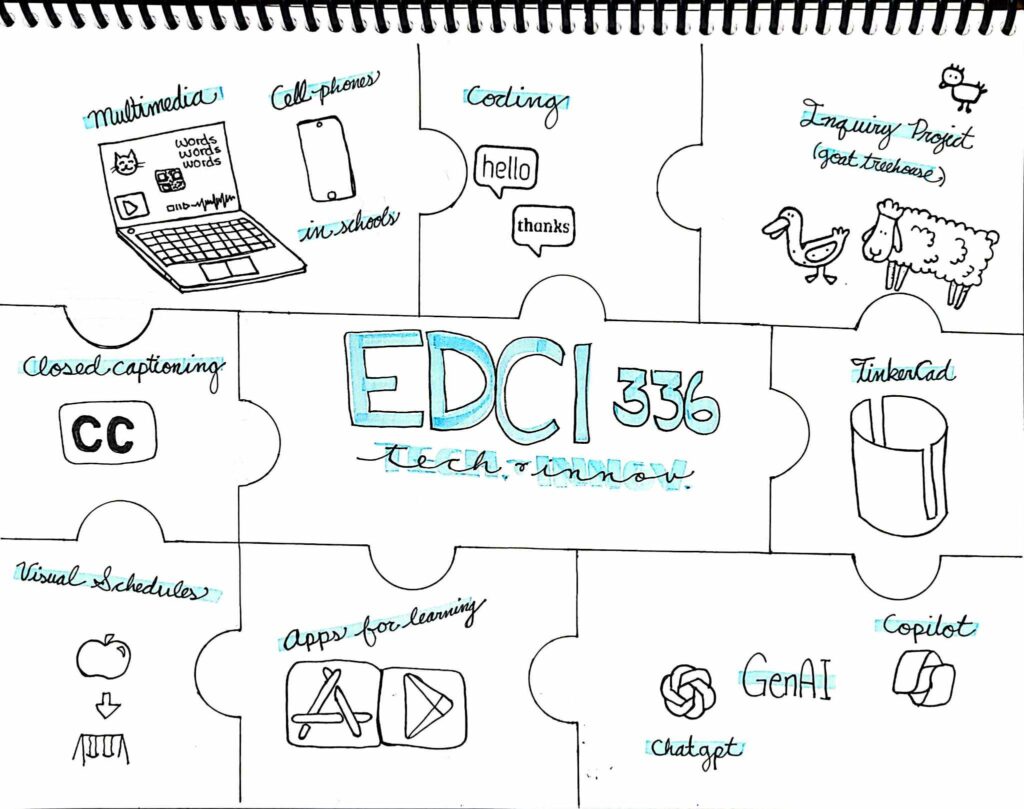 Multimedia
words
words
words
Cell-phones
in schools
Coding
hello
thanks
Inquiry Project
(goat treehouse)
Closed captioning
CC
EDCI 336
tech & innov.
TinkerCad
Visual Schedules
Apps for learning
GenAI
Copilot
Chatgpt